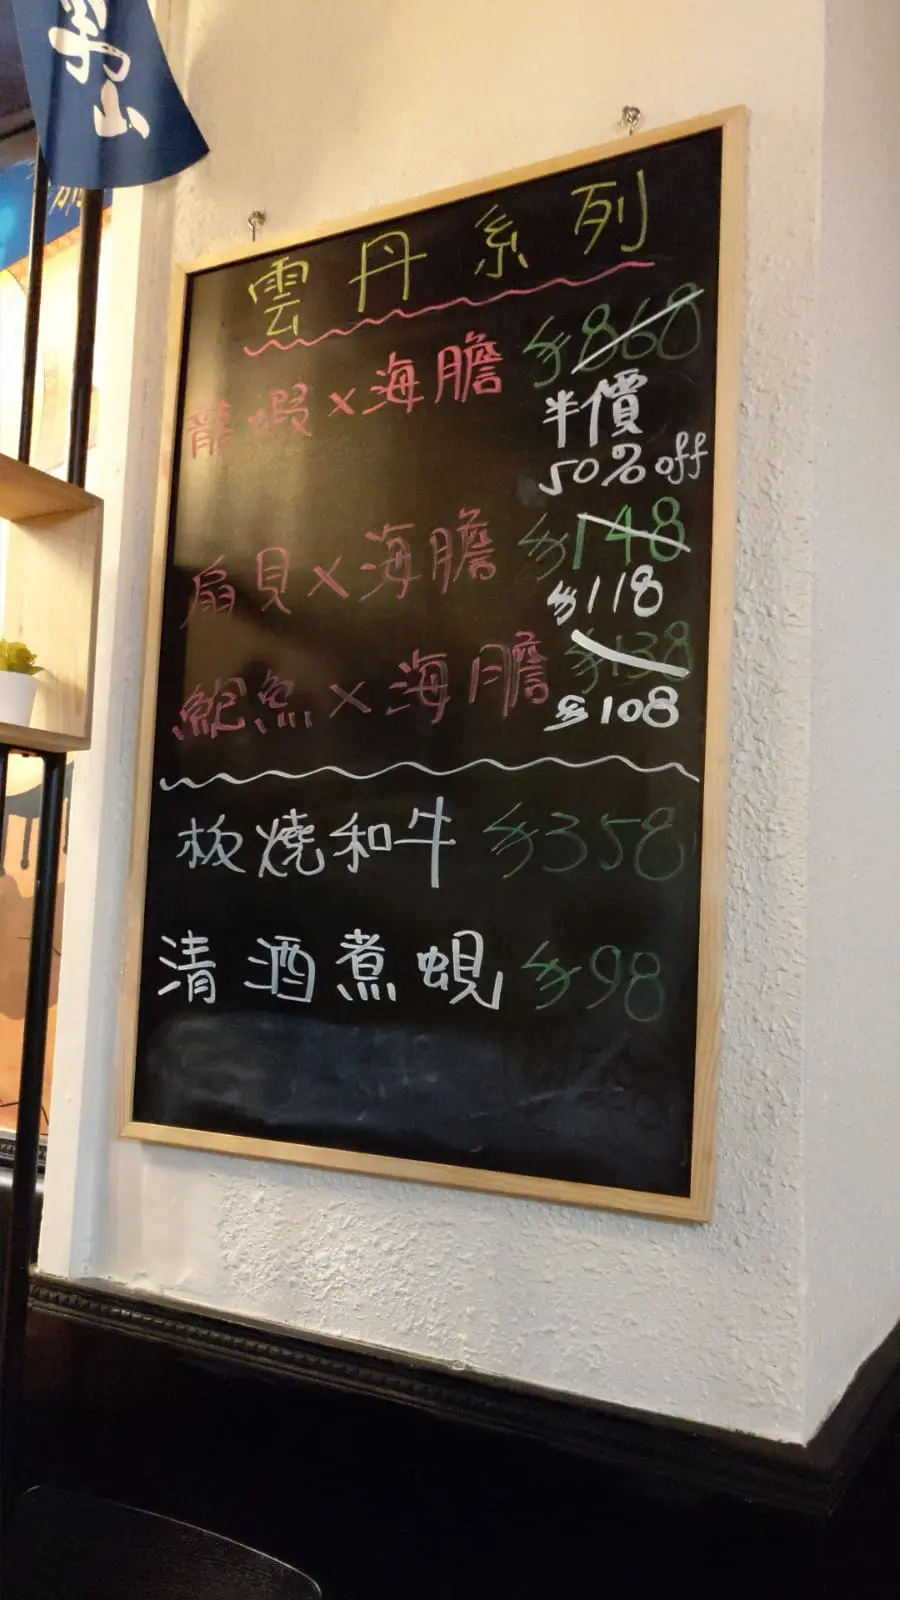 男山
雲丹系列
龍蝦×海膽 $868
半價
50% off
扇貝×海膽 $148
$118
鮑魚×海膽 $138
$108
板燒和牛 $358
清酒煮蜆 $98